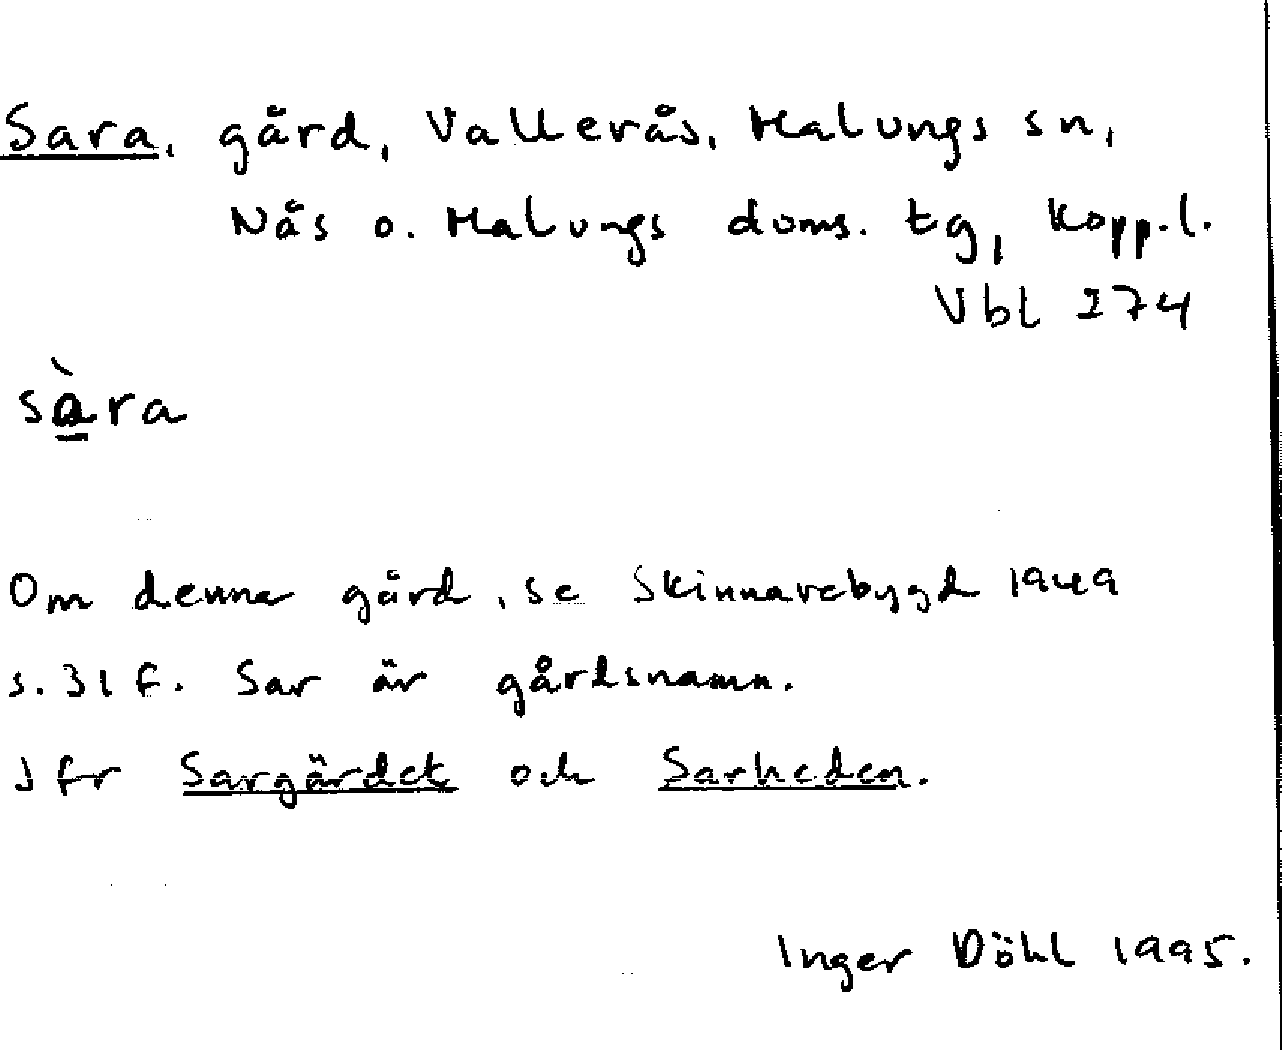 Sara, gård, Vallerås, Malungs sn,
Nås o. Malungs doms. tg, Kopp.l.
Vbl 274
sà̱ra
Om denna gård, se Skinnarebygd 1949
s. 31 f. Sar är gårdsnamn.
Jfr Sargärdet och Sarheden.
Inger Döhl 1995.